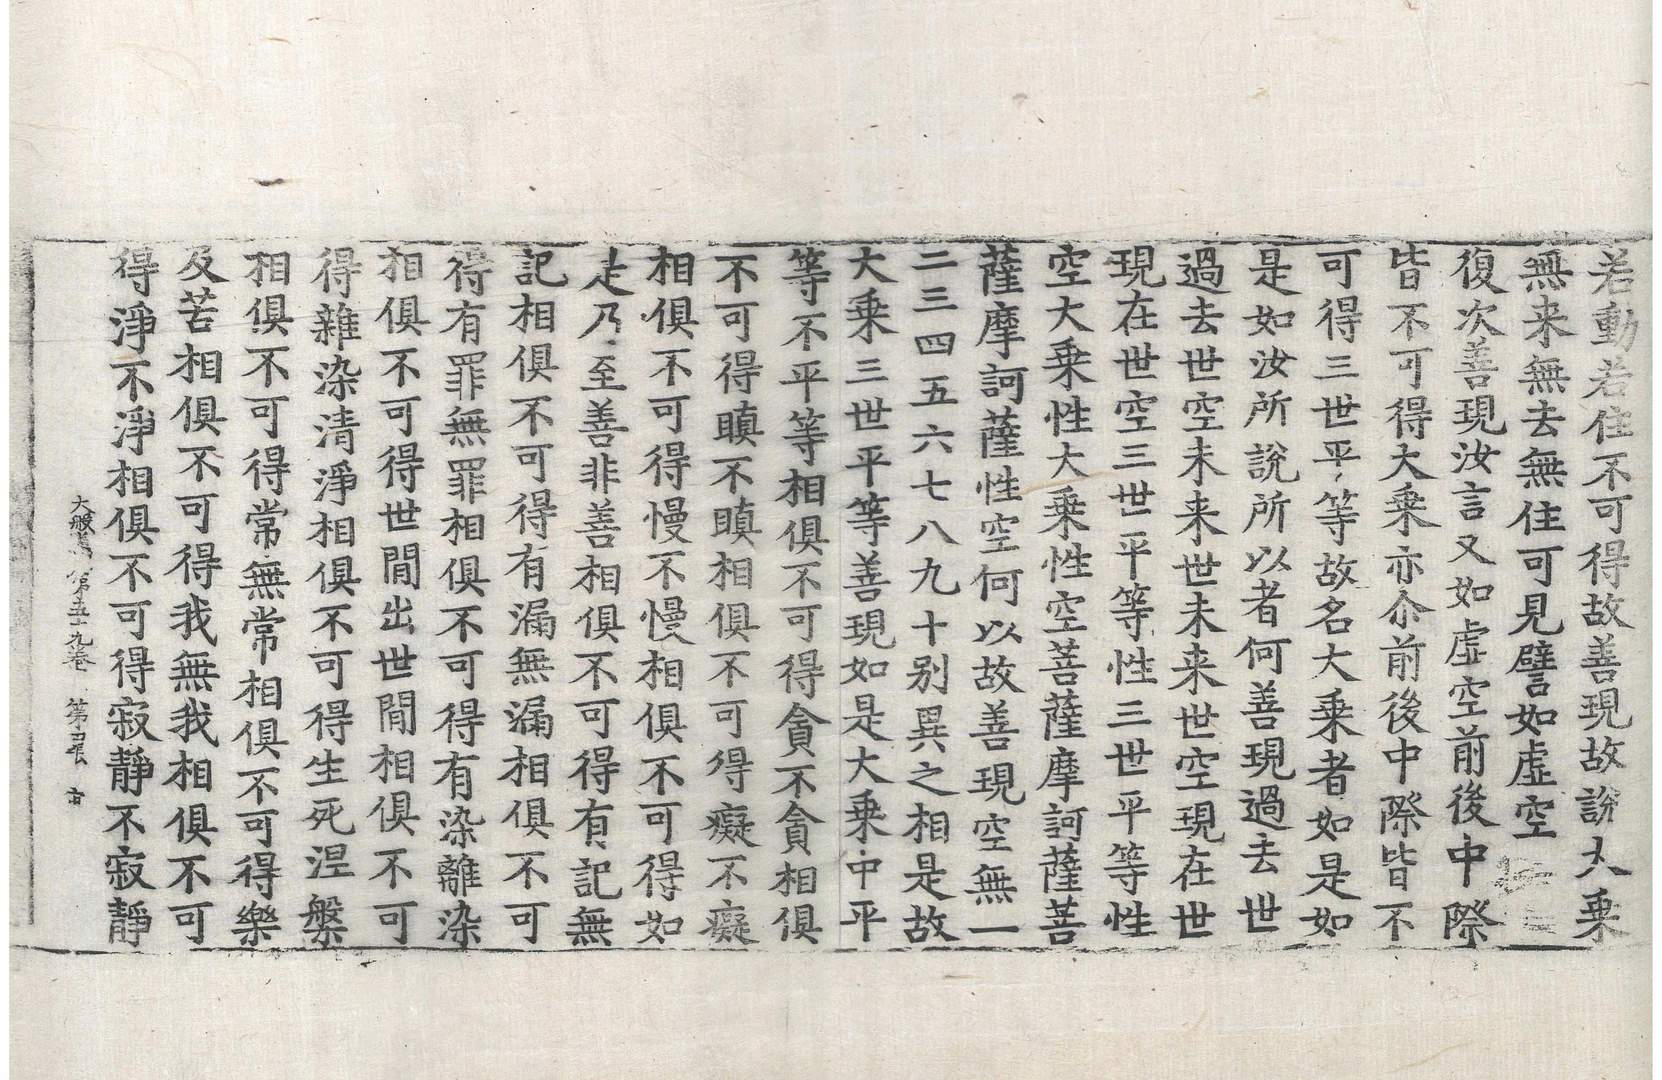 若動若住不可得故善現故說大乗
無来無去無住可見譬如虛空
復次善現汝言又如虛空前後中際
皆不可得大乗亦尒前後中際皆不
可得三世平等故名大乗者如是如
是如汝所說所以者何善現過去世
過去世空未来世未来世空現在世
現在世空三世平等性三世平等性
空大乗性大乗性空菩薩摩訶薩菩
薩摩訶薩性空何以故善現空無一
二三四五六七八九十别異之相是故
大乗三世平等善現如是大乗中平
等不平等相俱不可得貪不貪相俱
不可得瞋不瞋相俱不可得癡不癡
相俱不可得慢不慢相俱不可得如
是乃至善非善相俱不可得有記無
記相俱不可得有漏無漏相俱不可
得有罪無罪相俱不可得有染離染
相俱不可得世間出世間相俱不可
得雜染清淨相俱不可得生死涅槃
相俱不可得常無常相俱不可得樂
及苦相俱不可得我無我相俱不可
得淨不淨相俱不可得寂靜不寂靜
大般 第五十九卷 第 張